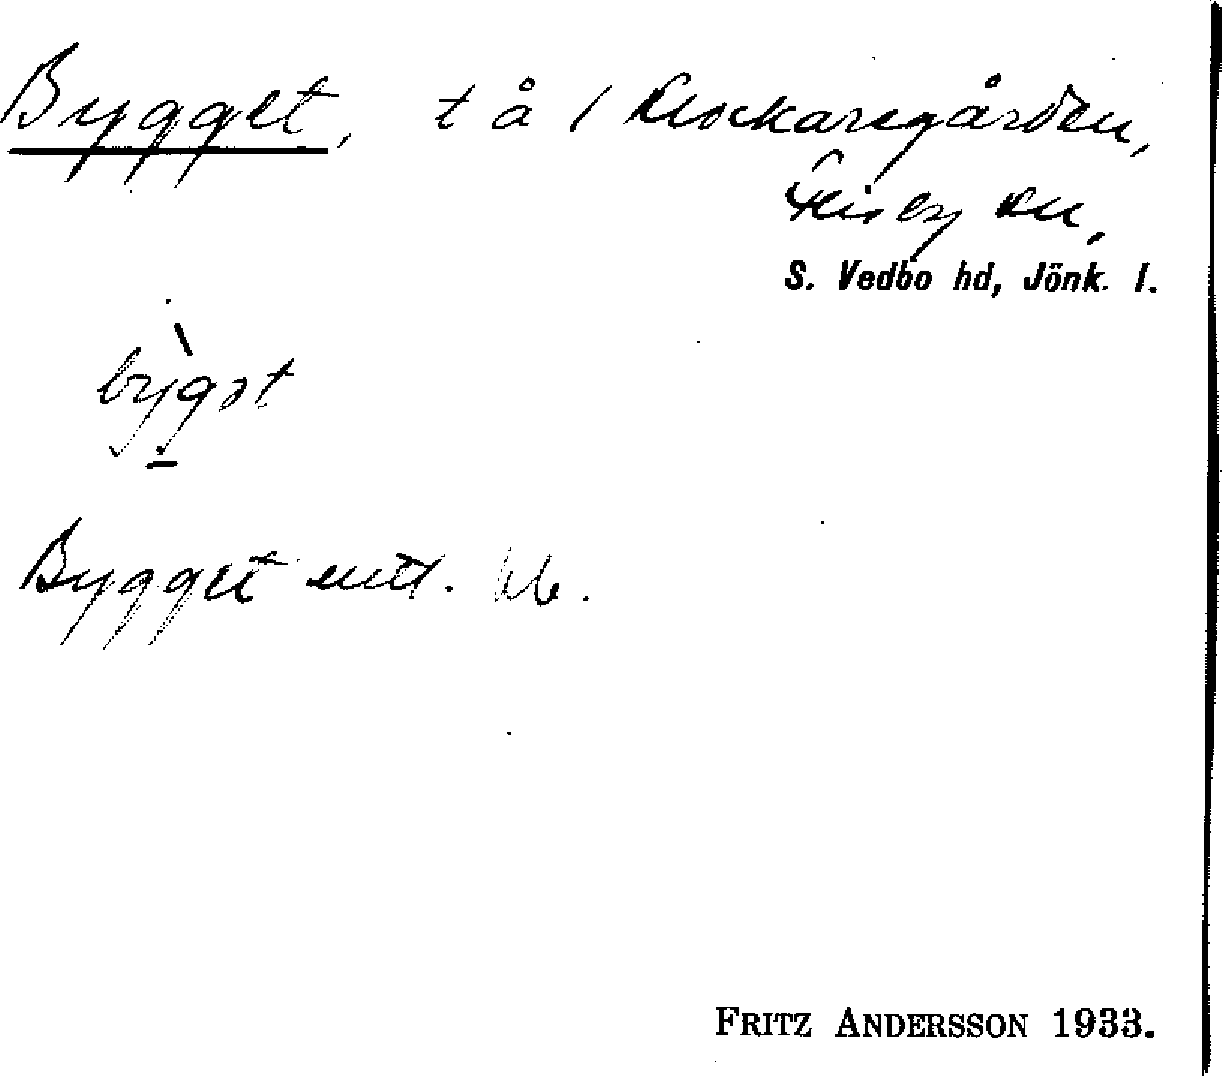 Bygget, t å / Klockaregården,
Flisby sn,
S. Vedbo hd, Jönk. l.
bỳgət
Bygget
FRITZ ANDERSSON 1933.